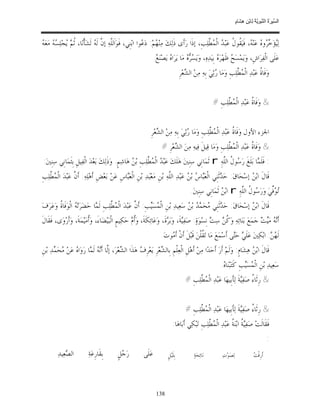 السّيرة النّبويّة لابن هشام
لِيُؤَخِّرُوهُ عَنْهُ، فَيَقُولُ عَبْدُ الْمُطَّلِبِ، إذَا رَأَى ذَلِكَ مِنْهُمْ: دَعُوا ابْنِي، فَوَاَللَّهِ إنَّ لَهُ لَشَأْنًا، ثُمَّ يُجْلِسُهُ مَعَهُ
عَلَى الْفِرَاشِ، وَيَمْسَحُ ظَهْرَهُ بِيَدِهِ، وَيَسُرُّهُ مَا يَرَاهُ يَصْنَعُ
وَفَاةُ عَبْدِ الْمُطَّلِبِ وَمَا رُثِيَ بِهِ مِنْ الشِّعْرِ
& وَفَاةُ عَبْدِ الْمُطَّلِبِ #
الجزء الأول وَفَاةُ عَبْدِ الْمُطَّلِبِ وَمَا رُثِيَ بِهِ مِنْ الشِّعْرِ
& وَفَاةُ عَبْدِ الْمُطَّلِبِ وَمَا قِيلَ فِيهِ مِنْ الشِّعْرِ #
فَلَمَّا بَلَغَ رَسُولُ اللَّهِ r ثَمَانِيَ سِنِينَ هَلَكَ عَبْدُ الْمُطَّلِبِ بْنُ هَاشِمٍ. وَذَلِكَ بَعْدَ الْفِيلِ بِثَمَانِي سِنِينَ
قَالَ ابْنُ إسْحَاقَ: حَدَّثَنِي الْعَبَّاسُ بْنُ عَبْدِ اللَّهِ بْنِ مَعْبَدِ بْنِ الْعَبَّاسِ عَنْ بَعْضِ أَهْلِهِ: أَنَّ عَبْدَ الْمُطَّلِبِ
تُوُفِّيَ وَرَسُولُ اللَّهِ r ابْنُ ثَمَانِي سِنِينَ
قَالَ ابْنُ إسْحَاقَ: حَدَّثَنِي مُحَمَّدُ بْنُ سَعِيدِ بْنِ الْمُسَيِّبِ: أَنَّ عَبْدَ الْمُطَّلِبِ لَمَّا حَضَرَتْهُ الْوَفَاةُ وَعَرَفَ
أَنَّهُ مَيِّتٌ جَمَعَ بَنَاتِهِ وَكُنَّ سِتَّ نِسْوَةٍ: صَفِيَّةَ، وَبَرَّةَ، وَعَاتِكَةَ، وَأُمَّ حَكِيمٍ الْبَيْضَاءَ، وَأُمَيْمَةَ، وَأَرْوَى، فَقَالَ
لَهُنَّ: ابْكِينَ عَلَيَّ حَتَّى أَسْمَعَ مَا تَقُلْنَ قَبْلَ أَنْ أَمُوتَ
قَالَ ابْنُ هِشَامٍ: وَلَمْ أَرَ أَحَدًا مِنْ أَهْلِ الْعِلْمِ بِالشِّعْرِ يَعْرِفُ هَذَا الشِّعْرَ، إلَّا أَنَّهُ لَمَّا رَوَاهُ عَنْ مُحَمَّدِ بْنِ
سَعِيدِ بْنِ الْمُسَيِّبِ كَتَبْنَاهُ
& رِثَاءُ صَفِيَّةَ لِأَبِيهَا عَبْدِ الْمُطَّلِبِ #
& رِثَاءُ صَفِيَّةَ لِأَبِيهَا عَبْدِ الْمُطَّلِبِ #
فَقَالَتْ صَفِيَّةُ ابْنَةُ عَبْدِ الْمُطَّلِبِ تَبْكِي أَبَاهَا
:
أَرِقْتُ لِصَوْتِ نَائِحَةٍ بِلَيْلٍ عَلَى رَجُلٍ بِقَارِعَةِ الصَّعِيدِ
138